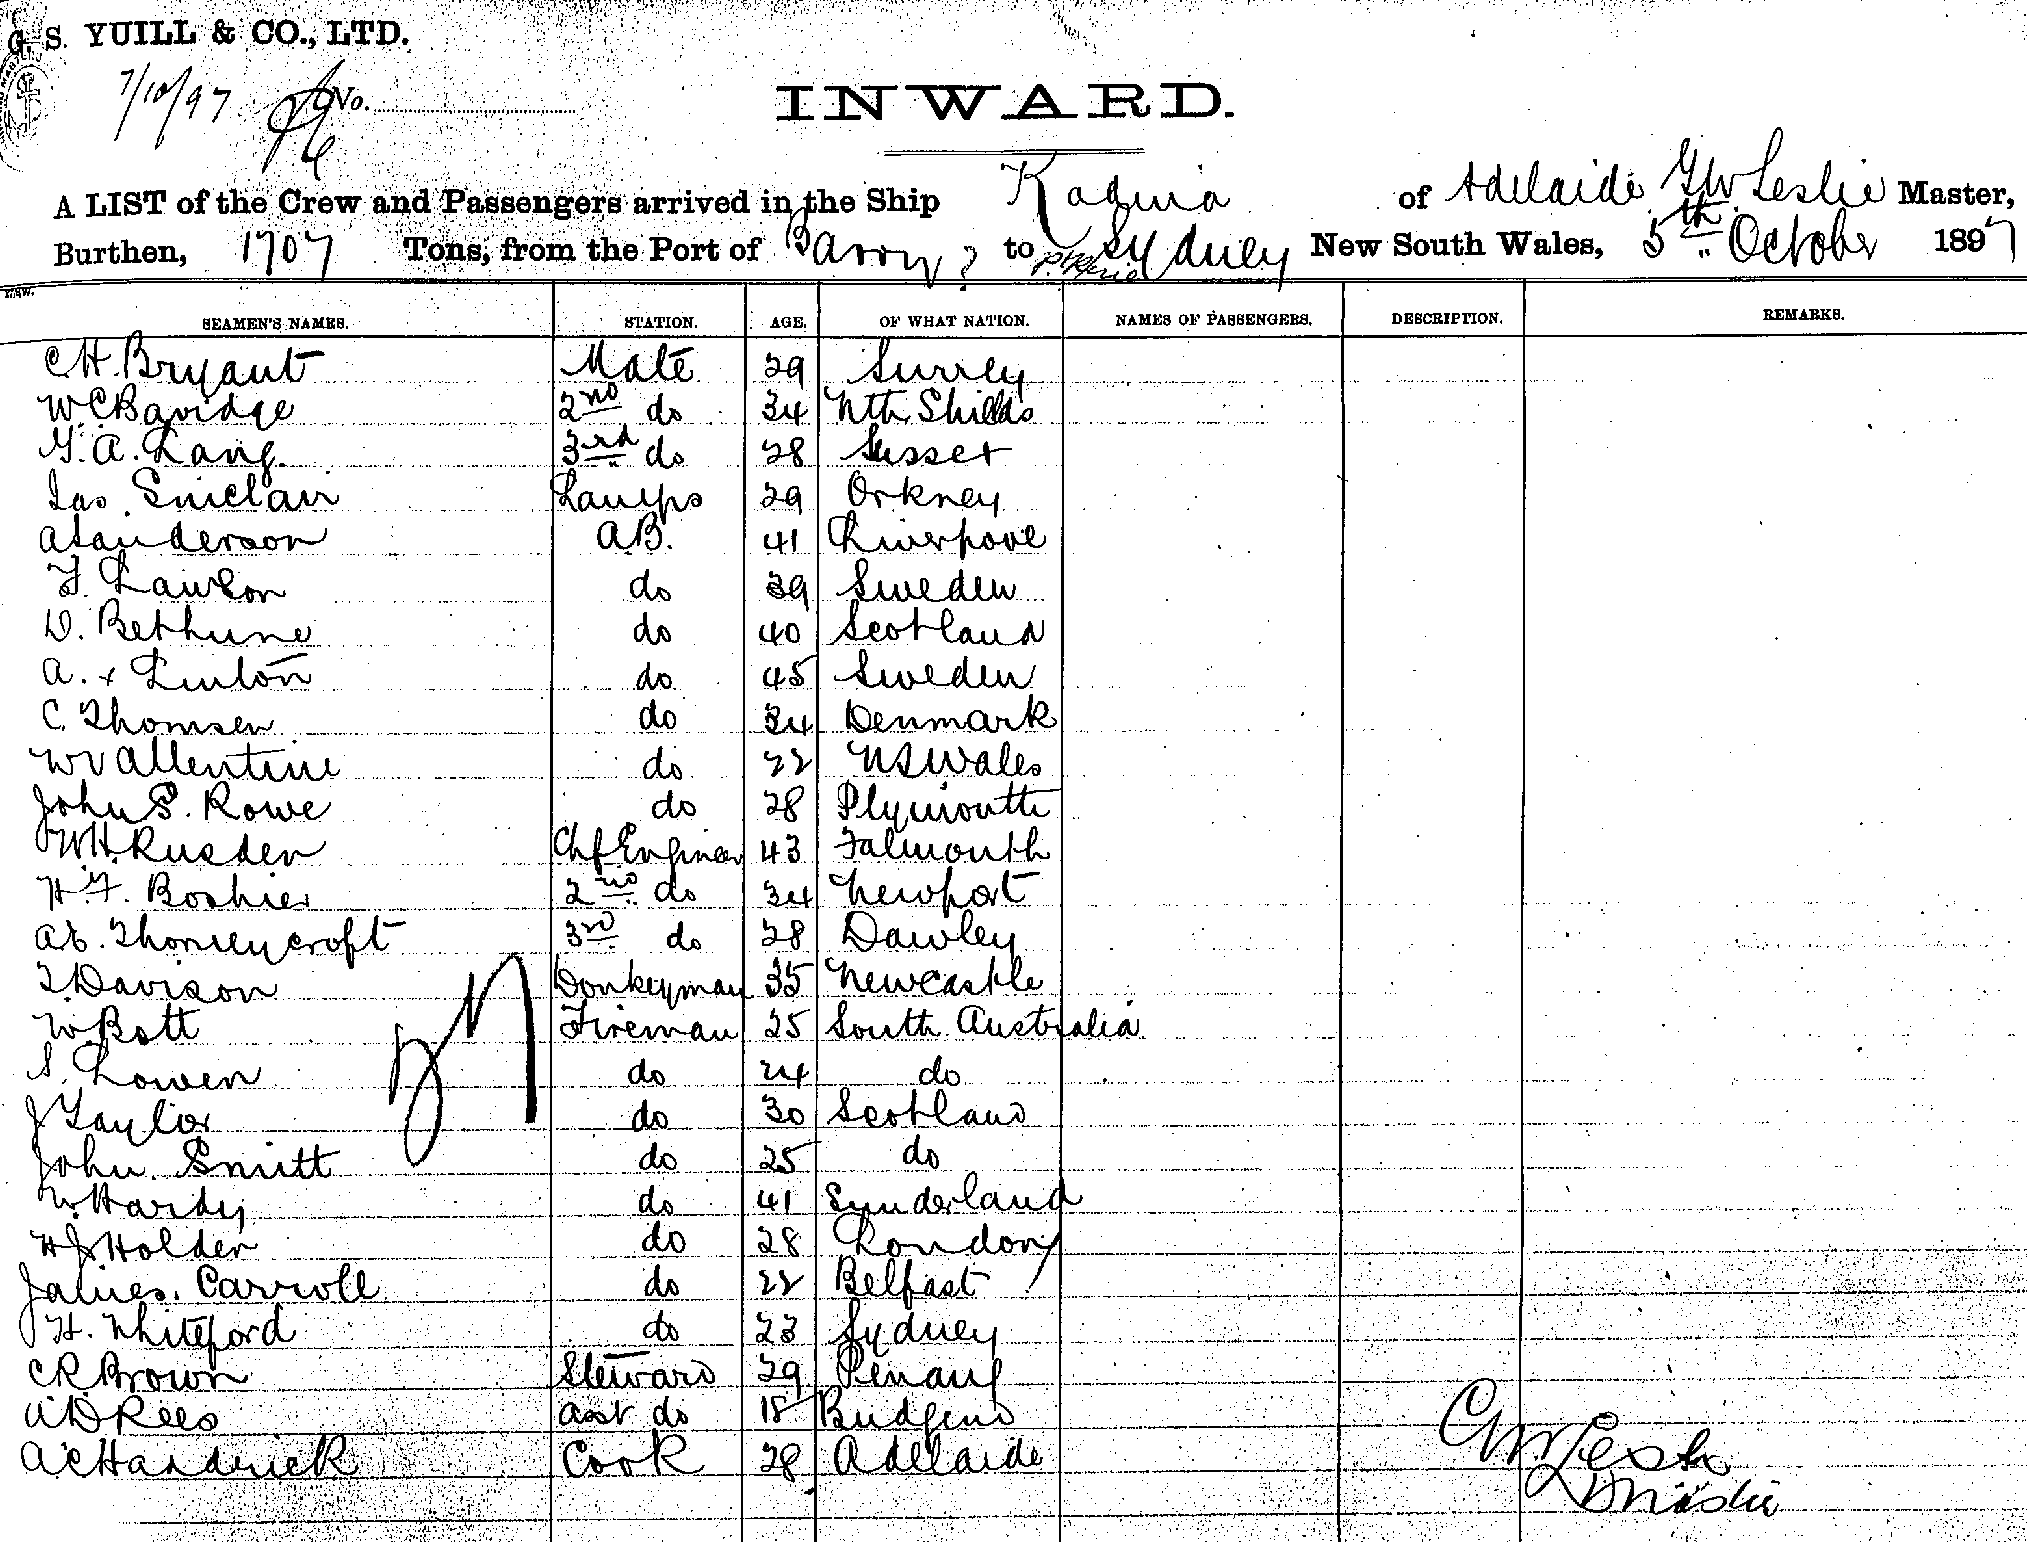 G. S. YUILL & CO., LTD.
7/10/97 No.
INWARD.
A LIST of the Crew and Passengers arrived in the Ship Kadina of Adelaide G W Leslie Master,
Burthen, 1707 Tons, from the Port of Barry to Sydney New South Wales, 5th October 1897
SEAMEN'S NAMES. STATION. AGE. OF WHAT NATION. NAMES OF PASSENGERS. DESCRIPTION. REMARKS.
C. H. Bryant Mate 29 Surrey
W. C. Bavidge 2nd do 34 Nth Shields
G. A. Lang 3rd do 28 Sussex
Jas. Sinclair Lamps 29 Orkney
A Sanderson A.B. 41 Liverpool
F. Lawson do 39 Sweden
D. Bethune do 40 Scotland
A. x Linton do 45 Sweden
C. Thomsen do 34 Denmark
W Vallentine do 22 N S Wales
John S. Rowe do 28 Plymouth
W. H. Rusden Chf Engineer 43 Falmouth
H. F. Boshier 2nd do 34 Newport
A E. Thorneycroft 3rd do 28 Dawley
T. Davison Donkeyman 35 Newcastle
W Bott Fireman 25 South Australia
S. Lowen do 24 do
J Taylor do 30 Scotland
John Smitt do 25 do
W. Hardy do 41 Sunderland
H J Holder do 28 London
James Carroll do 22 Belfast
H. Whiteford do 23 Sydney
C R Brown Steward 29 Penang
A D Rees Asst do 18 Bridgend
A C Handrick Cook 28 Adelaide
G W Leslie
Master